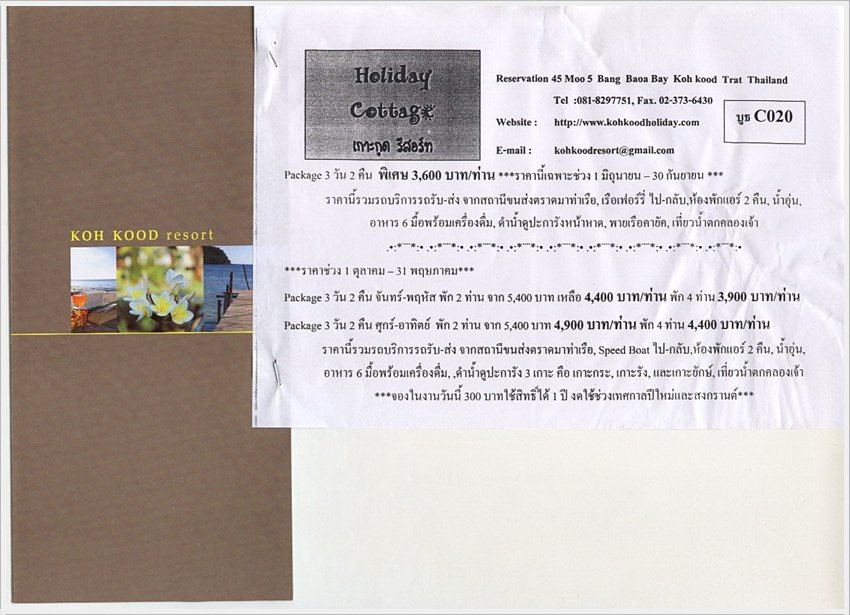 KOH KOOD resort
Holiday
Cottage
เกาะกูด รีสอร์ท
Reservation 45 Moo 5 Bang Baoa Bay Koh kood Trat Thailand
Tel :081-8297751, Fax. 02-373-6430
Website : http://www.kohkoodholiday.com
E-mail : kohkoodresort@gmail.com
บูธ C020
Package 3 วัน 2 คืน พิเศษ 3,600 บาท/ท่าน ***ราคานี้เฉพาะช่วง 1 มิถุนายน – 30 กันยายน ***
ราคานี้รวมรถบริการรถรับ-ส่ง จากสถานีขนส่งตราดมาท่าเรือ, เรือเฟอร์รี่ ไป-กลับ,ห้องพักแอร์ 2 คืน, น้ำอุ่น,
อาหาร 6 มื้อพร้อมเครื่องดื่ม, ดำน้ำดูปะการังหน้าหาด, พายเรือคายัค, เที่ยวน้ำตกคลองเจ้า
***ราคาช่วง 1 ตุลาคม – 31 พฤษภาคม***
Package 3 วัน 2 คืน จันทร์-พฤหัส พัก 2 ท่าน จาก 5,400 บาท เหลือ 4,400 บาท/ท่าน พัก 4 ท่าน 3,900 บาท/ท่าน
Package 3 วัน 2 คืน ศุกร์-อาทิตย์ พัก 2 ท่าน จาก 5,400 บาท 4,900 บาท/ท่าน พัก 4 ท่าน 4,400 บาท/ท่าน
ราคานี้รวมรถบริการรถรับ-ส่ง จากสถานีขนส่งตราดมาท่าเรือ, Speed Boat ไป-กลับ,ห้องพักแอร์ 2 คืน, น้ำอุ่น,
อาหาร 6 มื้อพร้อมเครื่องดื่ม, ,ดำน้ำดูปะการัง 3 เกาะ คือ เกาะกระ, เกาะรัง, และเกาะยักษ์, เที่ยวน้ำตกคลองเจ้า
***จองในงานวันนี้ 300 บาทใช้สิทธิ์ได้ 1 ปี งดใช้ช่วงเทศกาลปีใหม่และสงกรานต์***